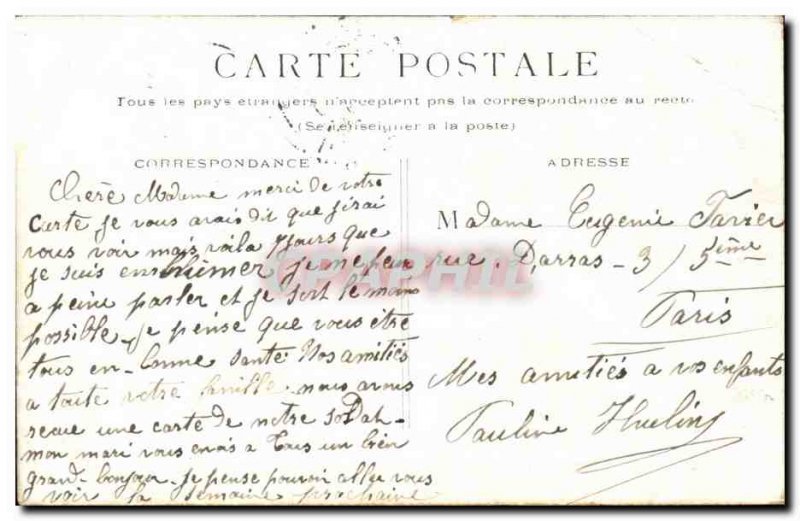 CARTE POSTALE
Tous les pays etrangers n'acceptent pas la correspondance au recto
(Se renseigner a la poste)
CORRESPONDANCE
Chere Madame merci de votre
Carte je vous avais dit que j'irai
vous voir mais voila jours que
je suis enrhumer je ne peux
a peine parler et je sort le moins
possible je pense que vous être
tous en bonne santé. Nos amitiés
a toute votre famille. nous avons
recue une carte de notre soldat
mon mari vous envoi a Tous un bien
grand bonjour je pense pouvoir aller vous
voir la semaine prochaine
ADRESSE
Madame Eugenie
rue Darras - 3/5ème
Paris
Mes amitiés a vos enfants
Pauline